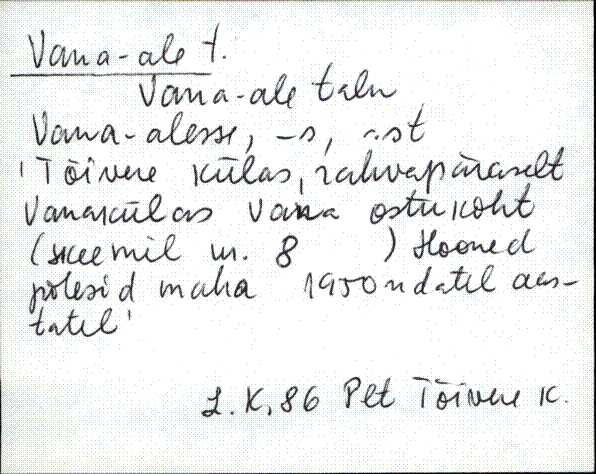 Vana-ale t.
Vana-ale talu
Vana-alesse, -s, -st
'Tõivere külas, rahvapäraselt
Vanaskülas vana ostukoht
(skeemil nr. 8 ) Hooned
põlesid maha 1950ndatel aas-
tatel'
L.K, 86 Plt Tõivere k.